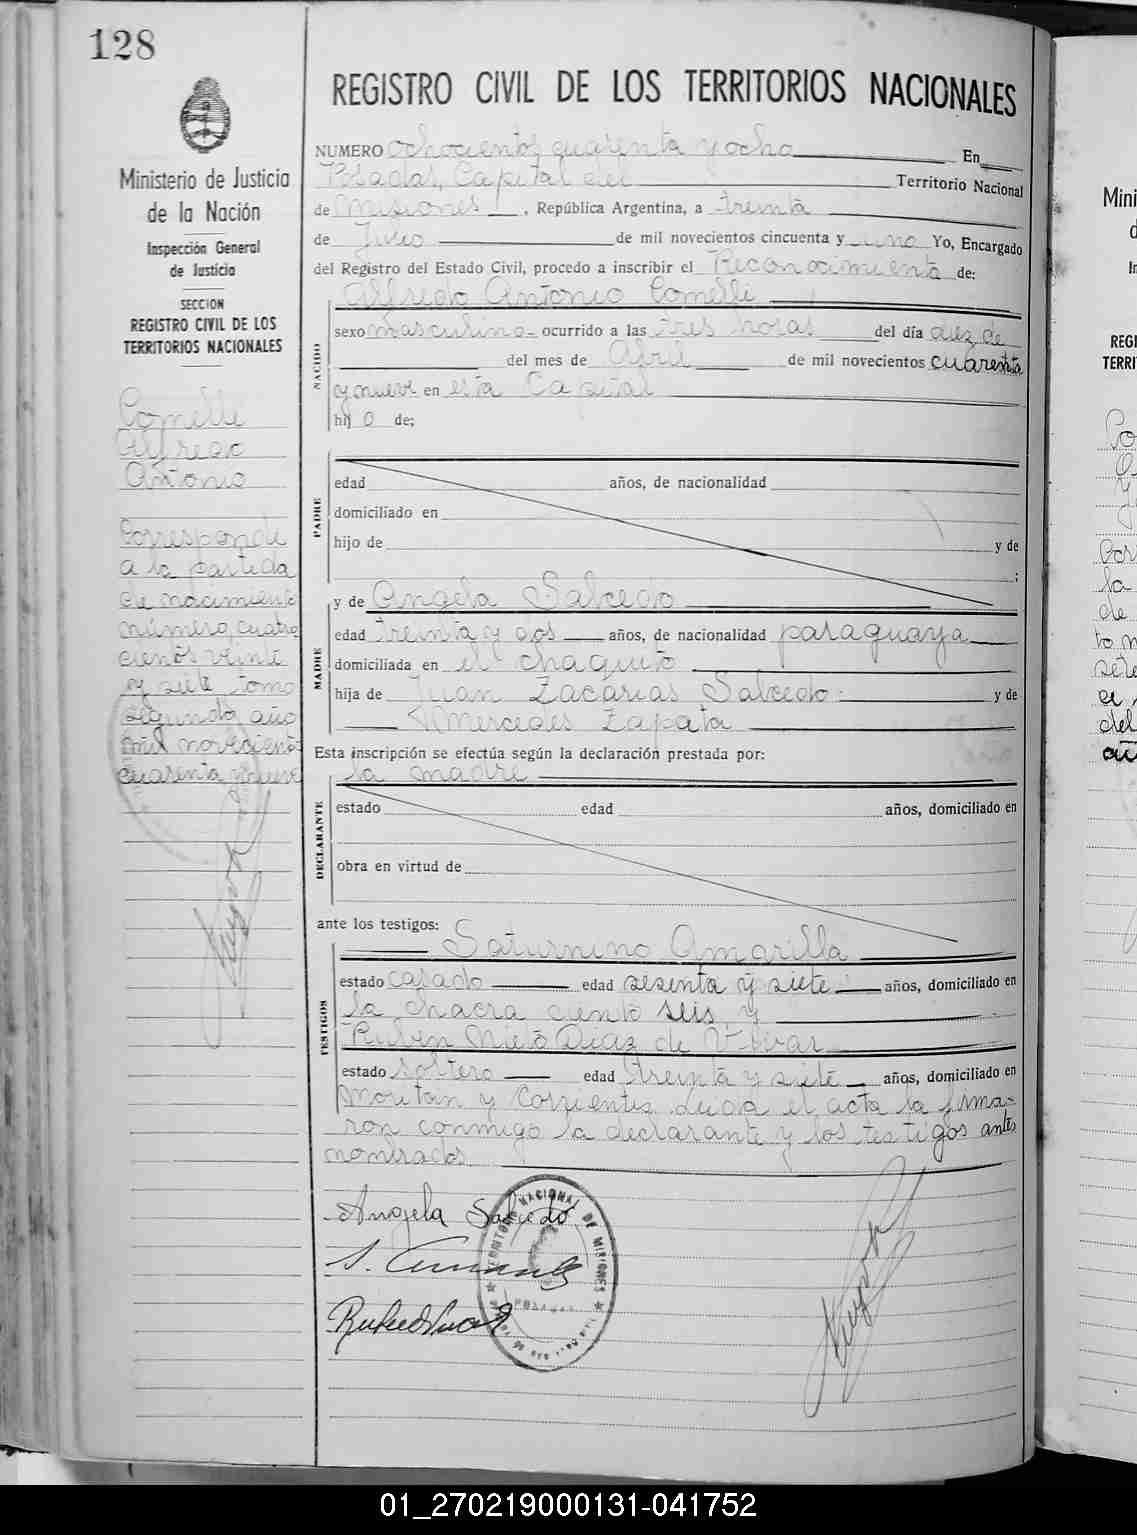 128
Ministerio de Justicia
de la Nación
Inspección General
de Justicia
SECCION
REGISTRO CIVIL DE LOS
TERRITORIOS NACIONALES
Comelli
Alfredo
Antonio
Corresponde
a la partida
de nacimiento
número cuatro
cientos veinte
y siete tomo
segundo año
mil novecientos
cuarenta y nueve
REGISTRO CIVIL DE LOS TERRITORIOS NACIONALES
NUMERO ochocientos cuarenta y ocho En
Posadas, Capital del Territorio Nacional
de Misiones, República Argentina, a treinta
de Julio de mil novecientos cincuenta y uno Yo, Encargado
del Registro del Estado Civil, procedo a inscribir el Reconocimiento de:
NACIDO
Alfredo Antonio Comelli
sexo masculino ocurrido a las tres horas del día diez de
del mes de Abril de mil novecientos cuarenta
y nueve en esta Capital
hijo de;
PADRE
edad años, de nacionalidad
domiciliado en
hijo de y de
;
MADRE
y de Angela Salcedo
edad treinta y dos años, de nacionalidad paraguaya
domiciliada en el chaquito
hija de Juan Zacarias Salcedo y de
Mercedes Zapata
Esta inscripción se efectúa según la declaración prestada por:
la madre
DECLARANTE
estado edad años, domiciliado en
obra en virtud de
ante los testigos:
TESTIGOS
Saturnino Amarilla
estado casado edad sesenta y siete años, domiciliado en
la chacra ciento seis y
Ruben Nieto Diaz de Vivar
estado soltero edad treinta y siete años, domiciliado en
Moritan y Corrientes. Leida el acta la firma-
ron conmigo la declarante y los testigos antes
nombrados
Angela Salcedo
TERRITORIO NACIONAL DE MISIONES
POSADAS
01_270219000131-041752